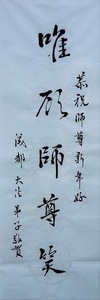 恭祝師尊新年好
唯願師尊笑
成都大法弟子敬賀